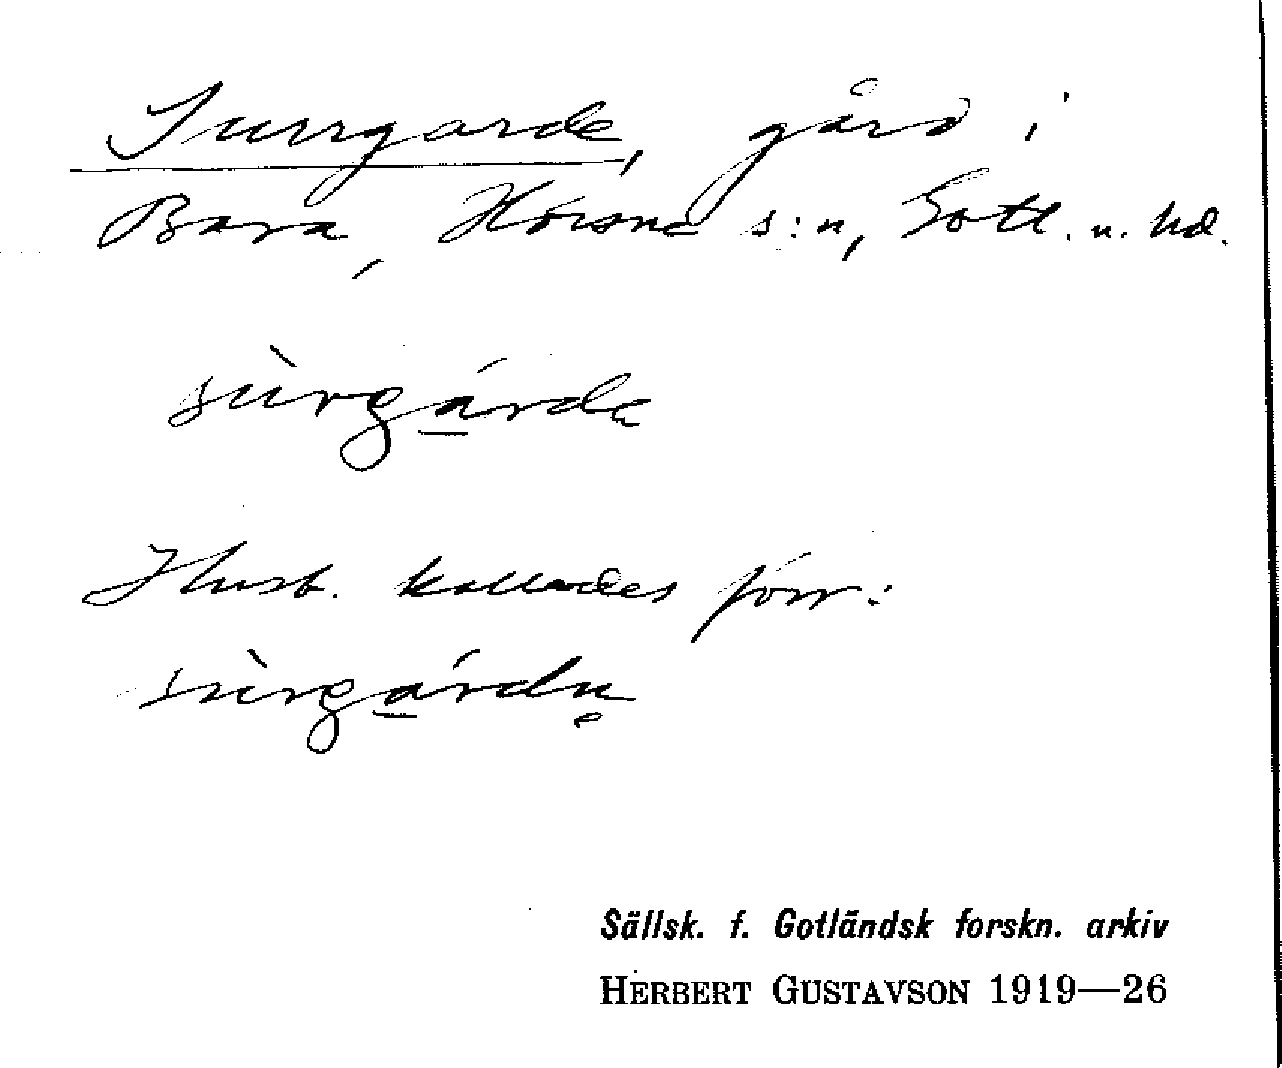 Surrgarde, gård i
Bara, Hörsne s:n, Gotl. n. hd.
sùrgárda
Husb. kallades förr:
sùrgárdu
Sällsk. f. Gotländsk forskn. arkiv
HERBERT GUSTAVSON 1919—26